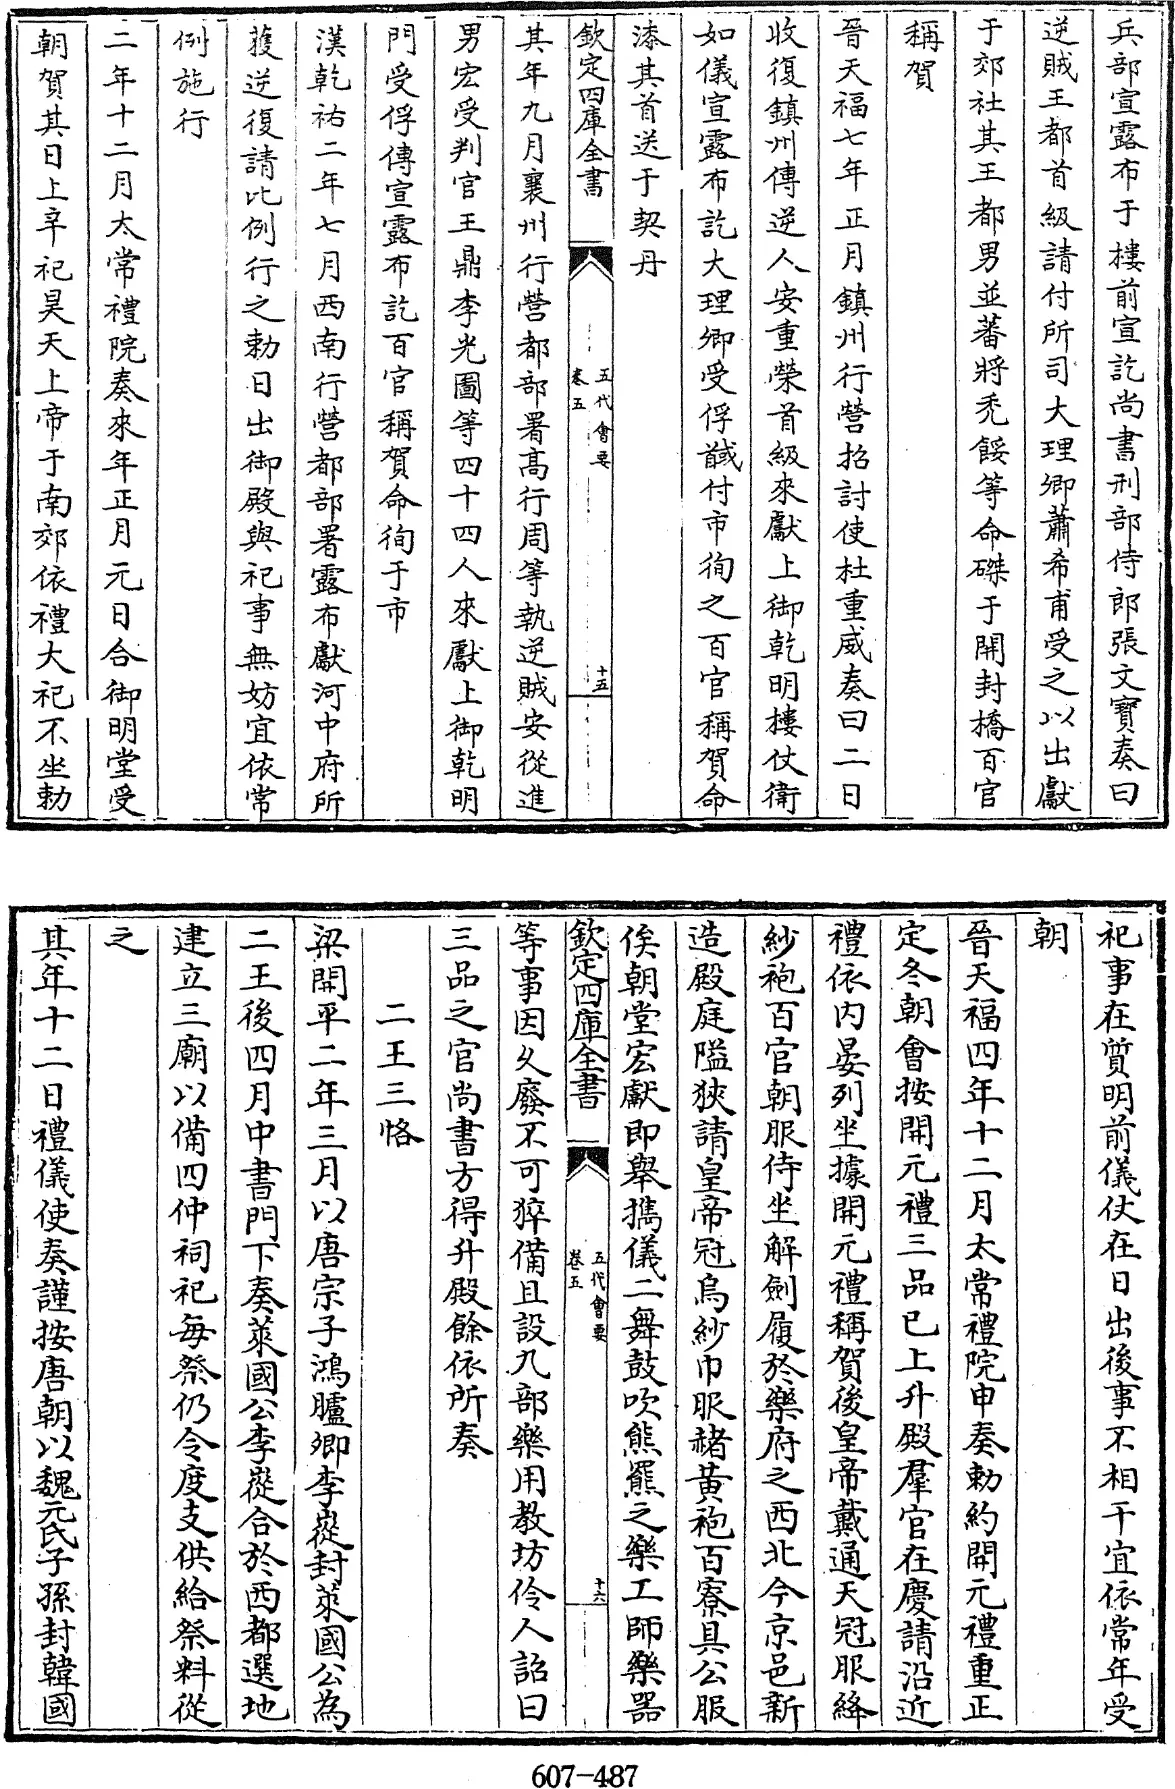 兵部宣露布于樓前宣訖尚書刑部侍郎張文寶奏曰
逆賊王都首級請付所司大理卿蕭希甫受之以出獻
于郊社其王都男並蕃將禿餒等命磔于開封橋百官
稱賀
晉天福七年正月鎮州行營招討使杜重威奏曰二日
收復鎮州傳逆人安重榮首級來獻上御乾明樓仗衛
如儀宣露布訖大理卿受俘馘付市徇之百官稱賀命
漆其首送于契丹
欽定四庫全書
五代會要
卷五
十五
其年九月襄州行營都部署高行周等執逆賊安從進
男宏受判官王鼎李光圖等四十四人來獻上御乾明
門受俘傳宣露布訖百官稱賀命徇于市
漢乾祐二年七月西南行營都部署露布獻河中府所
獲逆復請比例行之勅日出御殿與祀事無妨宜依常
例施行
二年十二月太常禮院奏來年正月元日合御明堂受
朝賀其日上辛祀昊天上帝于南郊依禮大祀不坐勅
祀事在質明前儀仗在日出後事不相干宜依常年受
朝
晉天福四年十二月太常禮院申奏勅約開元禮重正
定冬朝會按開元禮三品已上升殿羣官在慶請沿近
禮依内晏列坐據開元禮稱賀後皇帝戴通天冠服絳
紗袍百官朝服侍坐解劍履於樂府之西北今京邑新
造殿庭隘狹請皇帝冠烏紗巾服赭黃袍百寮具公服
俟朝堂宏獻即舉㩦儀二舞鼓吹熊羆之樂工師樂器
欽定四庫全書
五代會要
卷五
十六
等事因久廢不可猝備且設九部樂用教坊伶人詔曰
三品之官尚書方得升殿餘依所奏
二王三恪
梁開平二年三月以唐宗子鴻臚卿李嵸封萊國公為
二王後四月中書門下奏萊國公李嵸合於西都選地
建立三廟以備四仲祠祀每祭仍令度支供給祭料從
之
其年十二日禮儀使奏謹按唐朝以魏元氏子孫封韓國
607-487